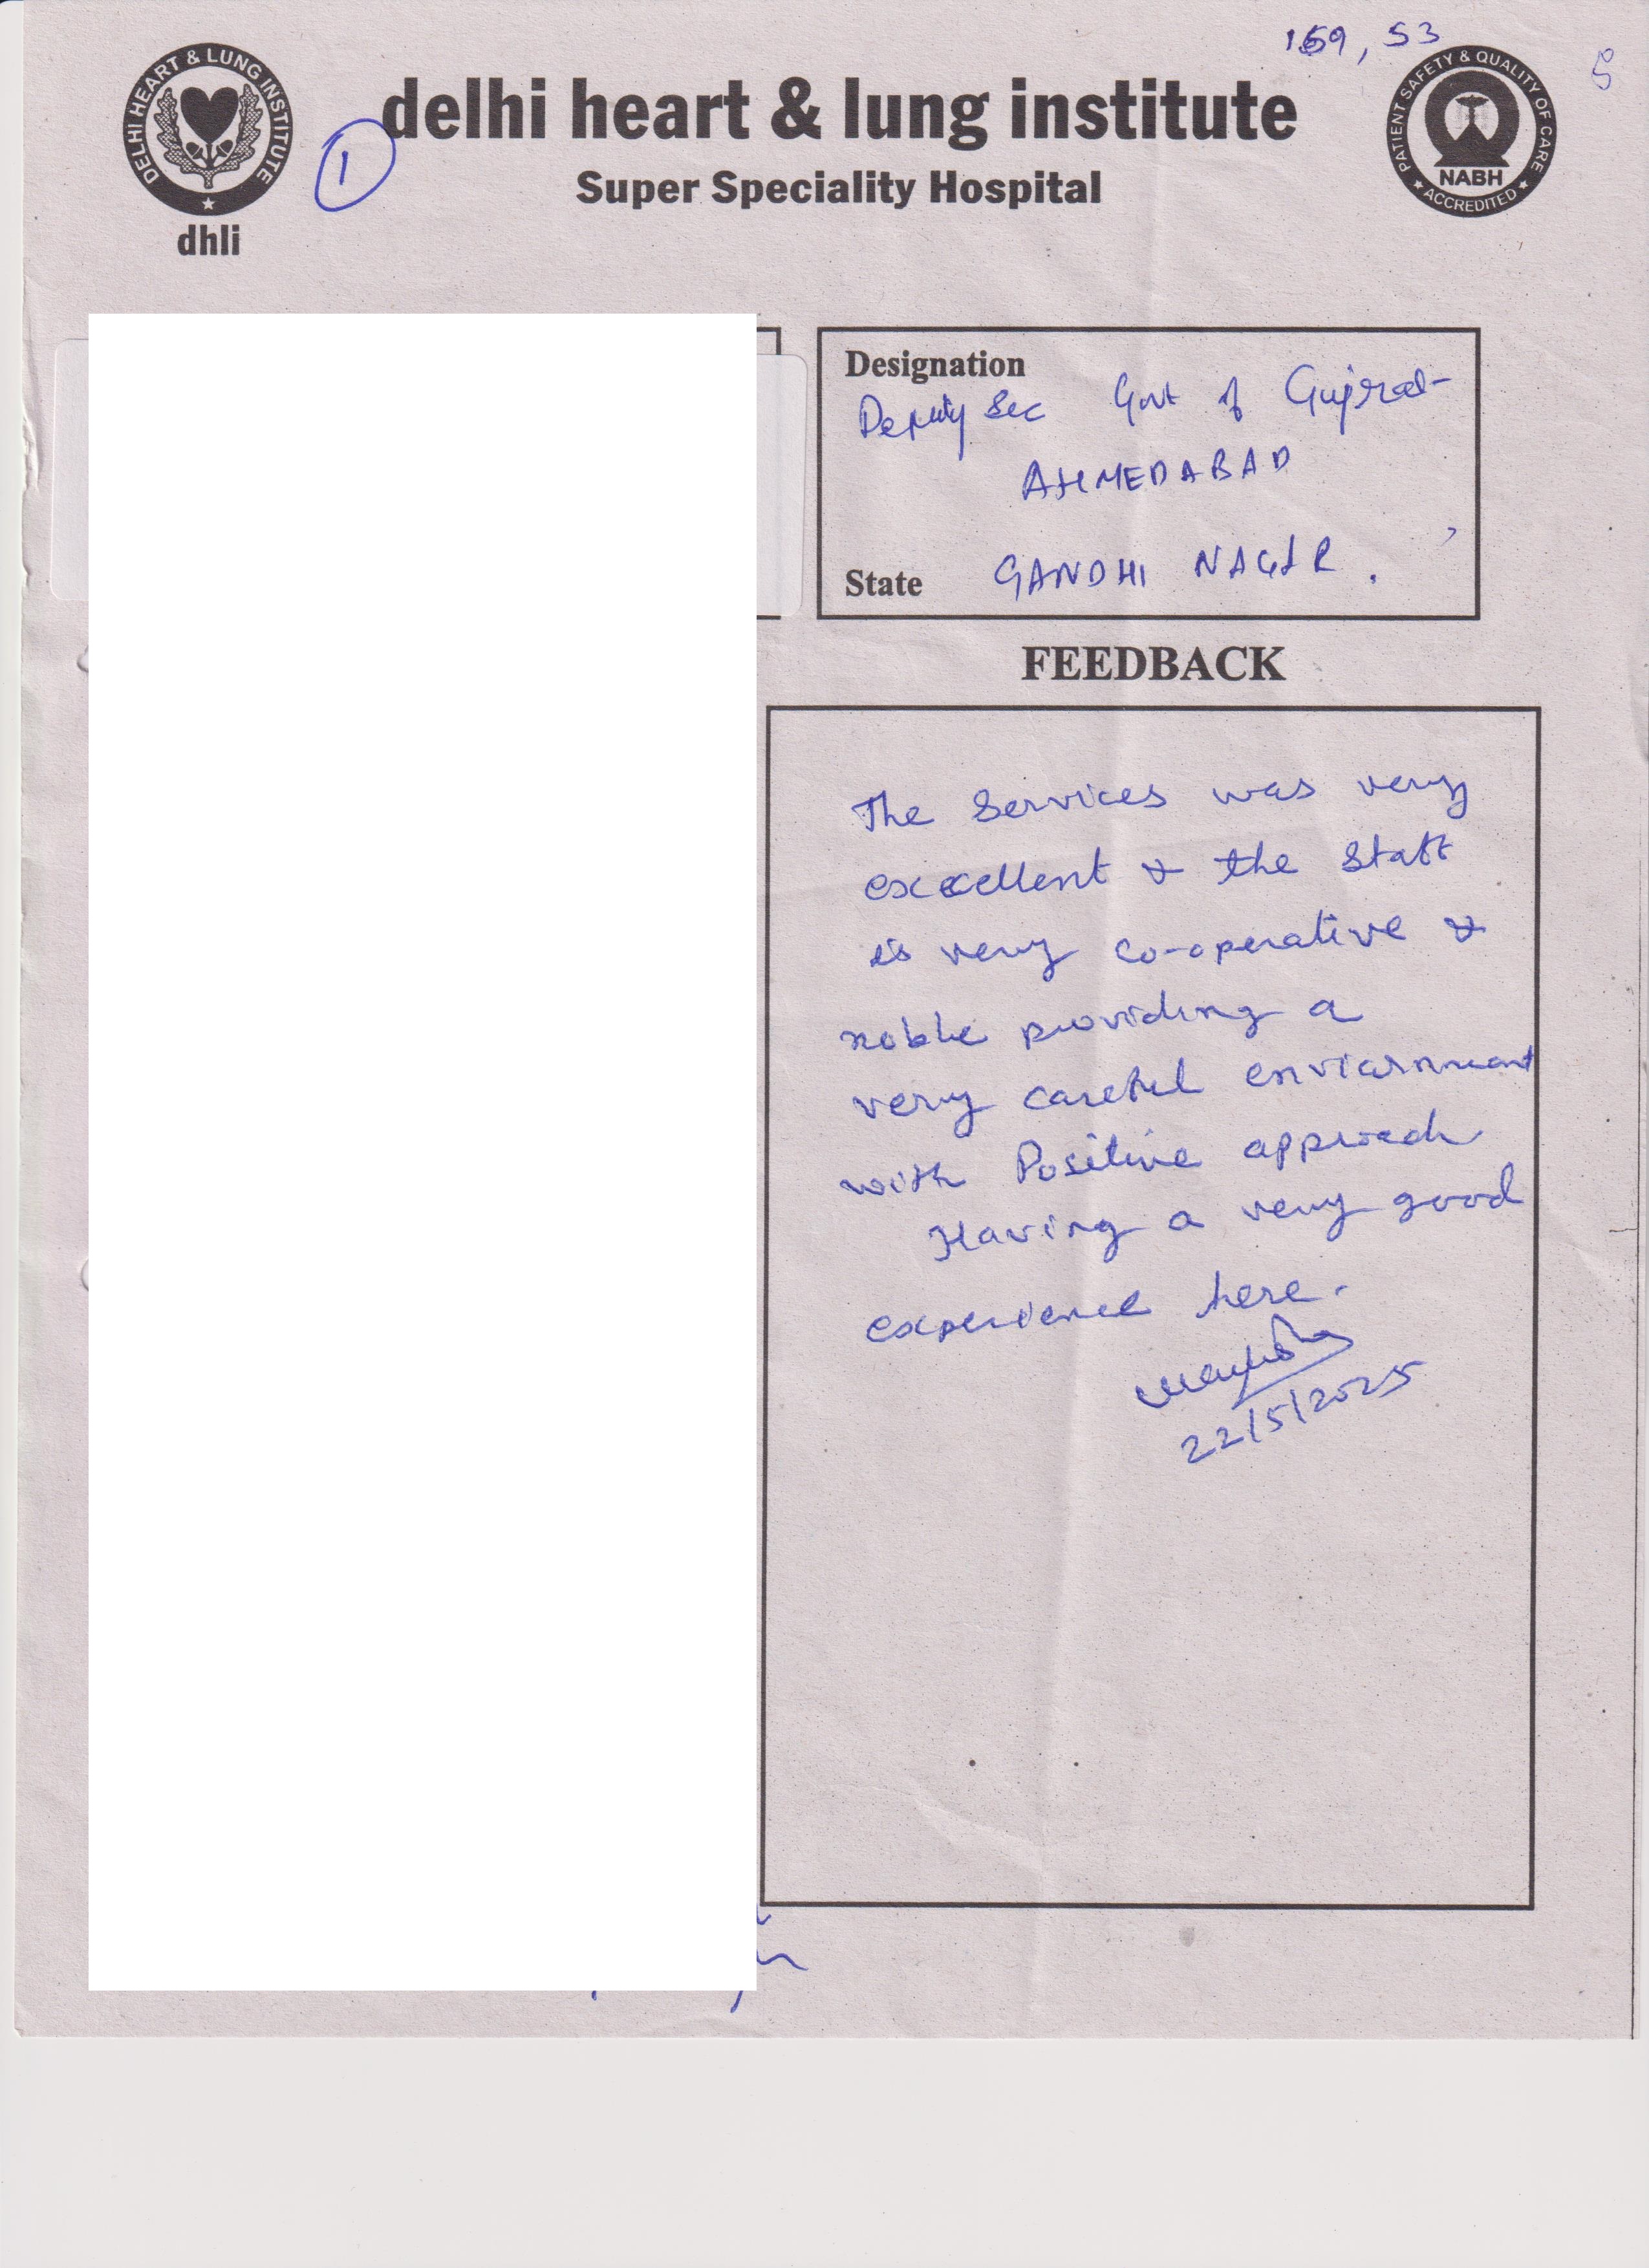 159, 53
5
DELHI HEART & LUNG INSTITUTE
dhli
1
delhi heart & lung institute
Super Speciality Hospital
PATIENT SAFETY & QUALITY OF CARE
NABH
ACCREDITED
Designation
Deputy Sec Govt of Gujrat
AHMEDABAD
State GANDHI NAGAR.
FEEDBACK
The Services was very
excellent & the staff
is very co-operative &
noble providing a
very careful enviornment
with Positive approach
Having a very good
experience here.
22/5/2025